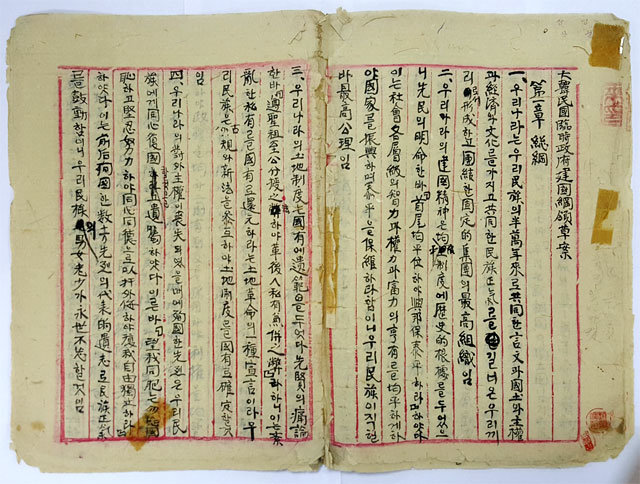 大韓民國臨時政府建國綱領草案
第一章 總綱
一、우리나라는 우리民族의 半萬年來로 共同한 言文과 國土와 主權
과 經濟와 文化를 가지고 共同한 民族正氣를 길너온 우리끼
리 形成하고 團結한 固定的 集團의 最高組織임
二、우리나라의 建國精神은 三均制度에 歷史的 根據를 두엇으
니 先民의 明命한바 首尾均平位하야 興邦保泰平하라 하엿다
이는 社會各層級의 智力과 權力과 富力의 享有를 均平하게하
야 國家를 振興하며 泰平을 保維하라 함이니 우리民族이 지킬
바 最高公理임
三、우리나라의 土地制度는 國有에 遺範을 두엇다 先賢의 痛論
한바 遵聖祖至公分授之法하야 革後人私有兼倂之弊라하니 이는 紊
亂한 私有를 國有로 還元하라는 土地革命의 一種宣言이라 우
리民族은 古規와 新法을 參互하야 土地制度를 國有로 確定할것
임
四、우리나라의 對外主權이 喪失되엿을때에 殉國한 先烈은 우리民
族에게 同心復國할것을 遺囑하엿다 이른바 望我同胞는 勿忘國
恥하고 堅忍努力하야 同心同德으로 以捍外侮하야 復我自由獨立하라
하얏다 이는 前後殉國한 數十万先烈의 代表的 遺志로 民族正氣
를 鼓動함이니 우리民族의 男女老少가 永世不忘할것임